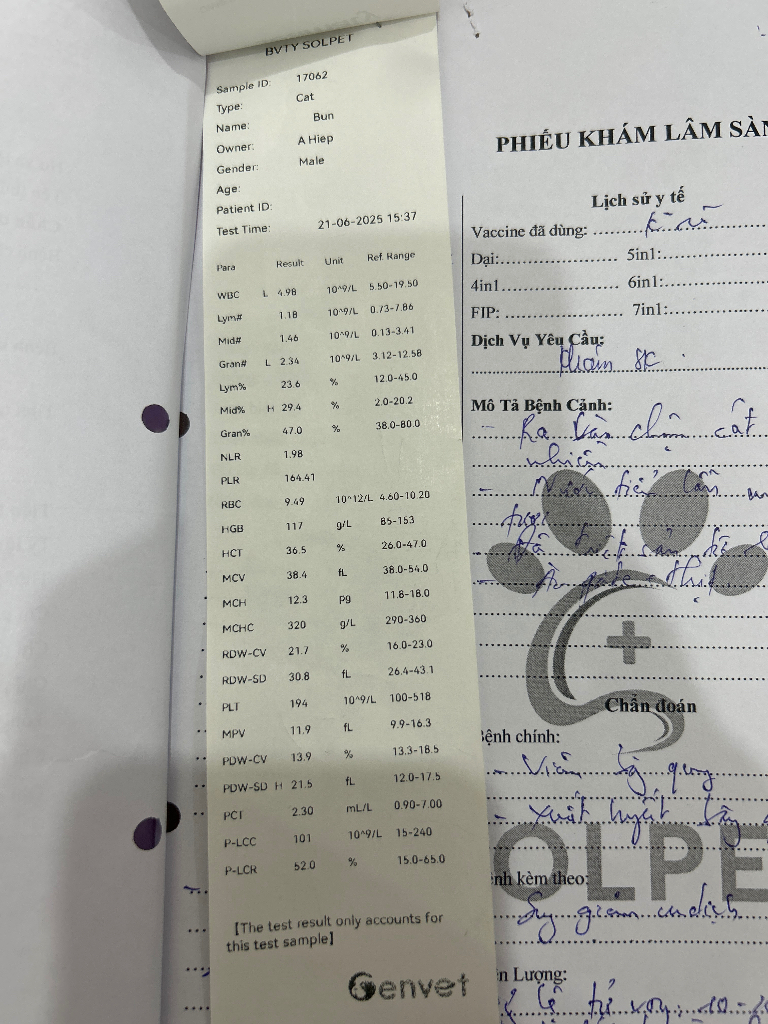 BVTY SOLPET
Sample ID: 17062
Type: Cat
Name: Bun
Owner: A Hiep
Gender: Male
Age:
Patient ID:
Test Time: 21-06-2025 15:37
Para Result Unit Ref. Range
WBC L 4.98 10^9/L 5.50-19.50
Lym# 1.18 10^9/L 0.73-7.86
Mid# 1.46 10^9/L 0.13-3.41
Gran# L 2.34 10^9/L 3.12-12.58
Lym% 23.6 % 12.0-45.0
Mid% H 29.4 % 2.0-20.2
Gran% 47.0 % 38.0-80.0
NLR 1.98
PLR 164.41
RBC 9.49 10^12/L 4.60-10.20
HGB 117 g/L 85-153
HCT 36.5 % 26.0-47.0
MCV 38.4 fL 38.0-54.0
MCH 12.3 pg 11.8-18.0
MCHC 320 g/L 290-360
RDW-CV 21.7 % 16.0-23.0
RDW-SD 30.8 fL 26.4-43.1
PLT 194 10^9/L 100-518
MPV 11.9 fL 9.9-16.3
PDW-CV 13.9 % 13.3-18.5
PDW-SD H 21.5 fL 12.0-17.5
PCT 2.30 mL/L 0.90-7.00
P-LCC 101 10^9/L 15-240
P-LCR 52.0 % 15.0-65.0
[The test result only accounts for
this test sample]
Genvet
PHIẾU KHÁM LÂM SÀN
Lịch sử y tế
Vaccine đã dùng:
Dại: 5in1:
4in1 6in1:
FIP: 7in1:
Dịch Vụ Yêu Cầu:
Khám SK
Mô Tả Bệnh Cảnh:
- Ra
nhiên
- Nước tiểu lẫn
tươi
- Đã triệt sản
- Ăn pate
Chẩn đoán
Bệnh chính:
- Viêm bg quang
- Xuất huyết
SOLPE
nh kèm theo:
Suy giảm
n Lượng: